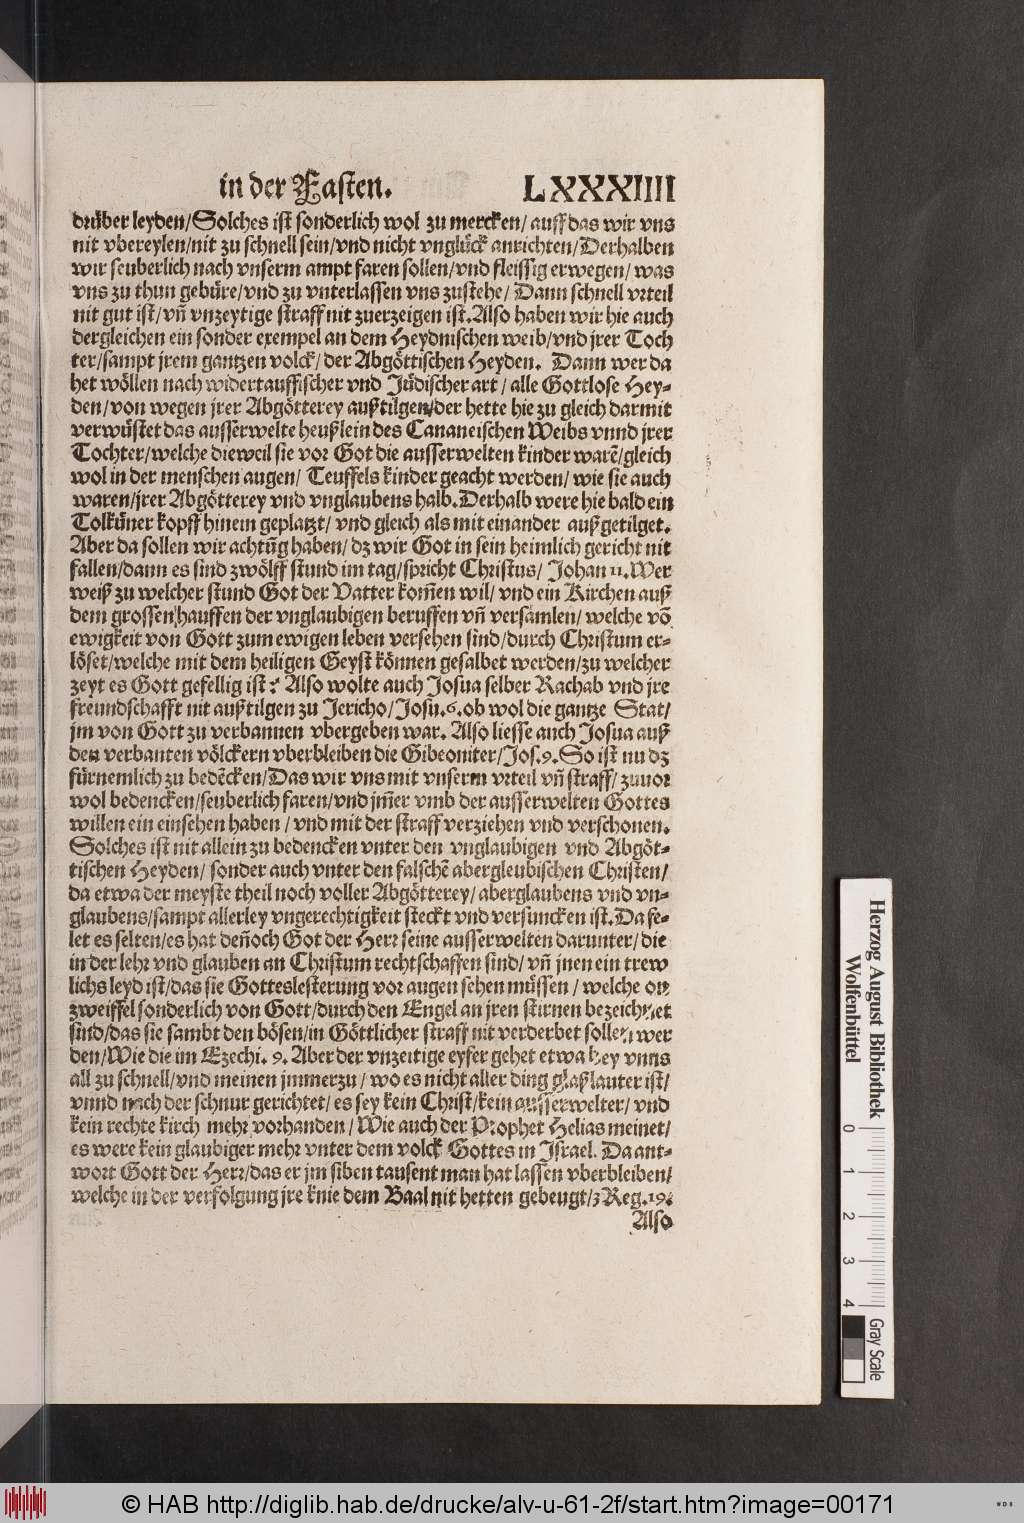 in der Fasten. LXXXIIII
drüber leyden/Solches ist sonderlich wol zu mercken/ auff das wir vns
nit vbereylen/nit zu schnell sein/vnd nicht vnglück anrichten/Derhalben
wir seuberlich nach vnserm ampt faren sollen/vnd fleissig erwegen/ was
vns zu thun gebüre/vnd zu vnterlassen vns zustehe/ Dann schnell vrteil
nit gut ist/vñ vnzeytige straff nit zuerzeigen ist. Also haben wir hie auch
dergleichen ein sonder exempel an dem Heydnischen weib/vnd jrer Toch
ter/sampt jrem gantzen volck/ der Abgöttischen Heyden. Dann wer da
het wöllen nach widertauffischer vnd Jüdischer art/ alle Gottlose Hey-
den/von wegen jrer Abgötterey außtilgen/der hette hie zu gleich darmit
verwüstet das ausserwelte heußlein des Cananeischen Weibs vnnd jrer
Tochter/welche dieweil sie vor Got die ausserwelten kinder warẽ/gleich
wol in der menschen augen/ Teuffels kinder geacht werden/ wie sie auch
waren/jrer Abgötterey vnd vnglaubens halb. Derhalb were hie bald ein
Tolküner kopff hinein geplatzt/ vnd gleich als mit einander außgetilget.
Aber da sollen wir achtũg haben/ dz wir Got in sein heimlich gericht nit
fallen/dann es sind zwölff stund im tag/spricht Christus/ Johan 11. Wer
weiß zu welcher stund Got der Vatter kom̃en wil/ vnd ein Kirchen auß
dem grossen hauffen der vnglaubigen beruffen vñ versamlen/ welche võ
ewigkeit von Gott zum ewigen leben versehen sind/durch Christum er-
löset/welche mit dem heiligen Geyst können gesalbet werden/zu welcher
zeyt es Gott gefellig ist? Also wolte auch Josua selber Rachab vnd jre
freundschafft nit außtilgen zu Jericho/Josu. 6. ob wol die gantze Stat/
jm von Gott zu verbannen vbergeben war. Also liesse auch Josua auß
den verbanten völckern vberbleiben die Gibeoniter/Jos. 9. So ist nu dz
fürnemlich zu bedẽcken/Das wir vns mit vnserm vrteil vñ straff/ zuuor
wol bedencken/seuberlich faren/vnd jm̃er vmb der ausserwelten Gottes
willen ein einsehen haben/ vnd mit der straff verziehen vnd verschonen.
Solches ist nit allein zu bedencken vnter den vnglaubigen vnd Abgöt-
tischen Heyden/ sonder auch vnter den falschẽ abergleubischen Christen/
da etwa der meyste theil noch voller Abgötterey/ aberglaubens vnd vn-
glaubens/sampt allerley vngerechtigkeit steckt vnd versuncken ist. Da fe-
let es selten/es hat deñoch Got der Herr seine ausserwelten darunter/ die
in der lehr vnd glauben an Christum rechtschaffen sind/ vñ jnen ein trew
lichs leyd ist/das sie Gotteslesterung vor augen sehen müssen/ welche on
zweiffel sonderlich von Gott/durch den Engel an jren stirnen bezeichnet
sind/das sie sambt den bösen/in Göttlicher straff nit verderbet sollen wer
den/Wie die im Ezechi. 9. Aber der vnzeitige eyfer gehet etwa bey vnns
all zu schnell/vnd meinen jmmerzu/ wo es nicht aller ding glaßlauter ist/
vnnd nach der schnur gerichtet/ es sey kein Christ/kein ausserwelter/ vnd
kein rechte kirch mehr vorhanden/ Wie auch der Prophet Helias meinet/
es were kein glaubiger mehr vnter dem volck Gottes in Jsrael. Da ant-
wort Gott der Herr/das er jm siben tausent man hat lassen vberbleiben/
welche in der verfolgung jre knie dem Baal nit hetten gebeugt/3 Reg. 19.
Also
Herzog August Bibliothek
Wolfenbüttel
0 1 2 3 4
Gray Scale
© HAB http://diglib.hab.de/drucke/alv-u-61-2f/start.htm?image=00171